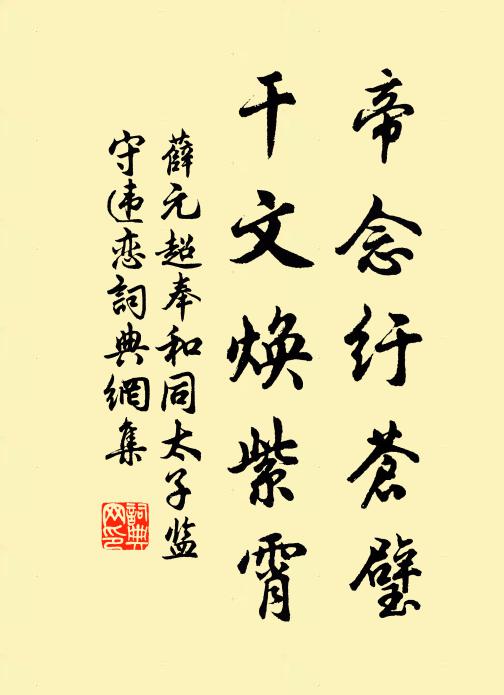 帝念纡苍璧
干文焕紫霄
薛元超奉和同太子监
守违恋词典網集
詞典网印